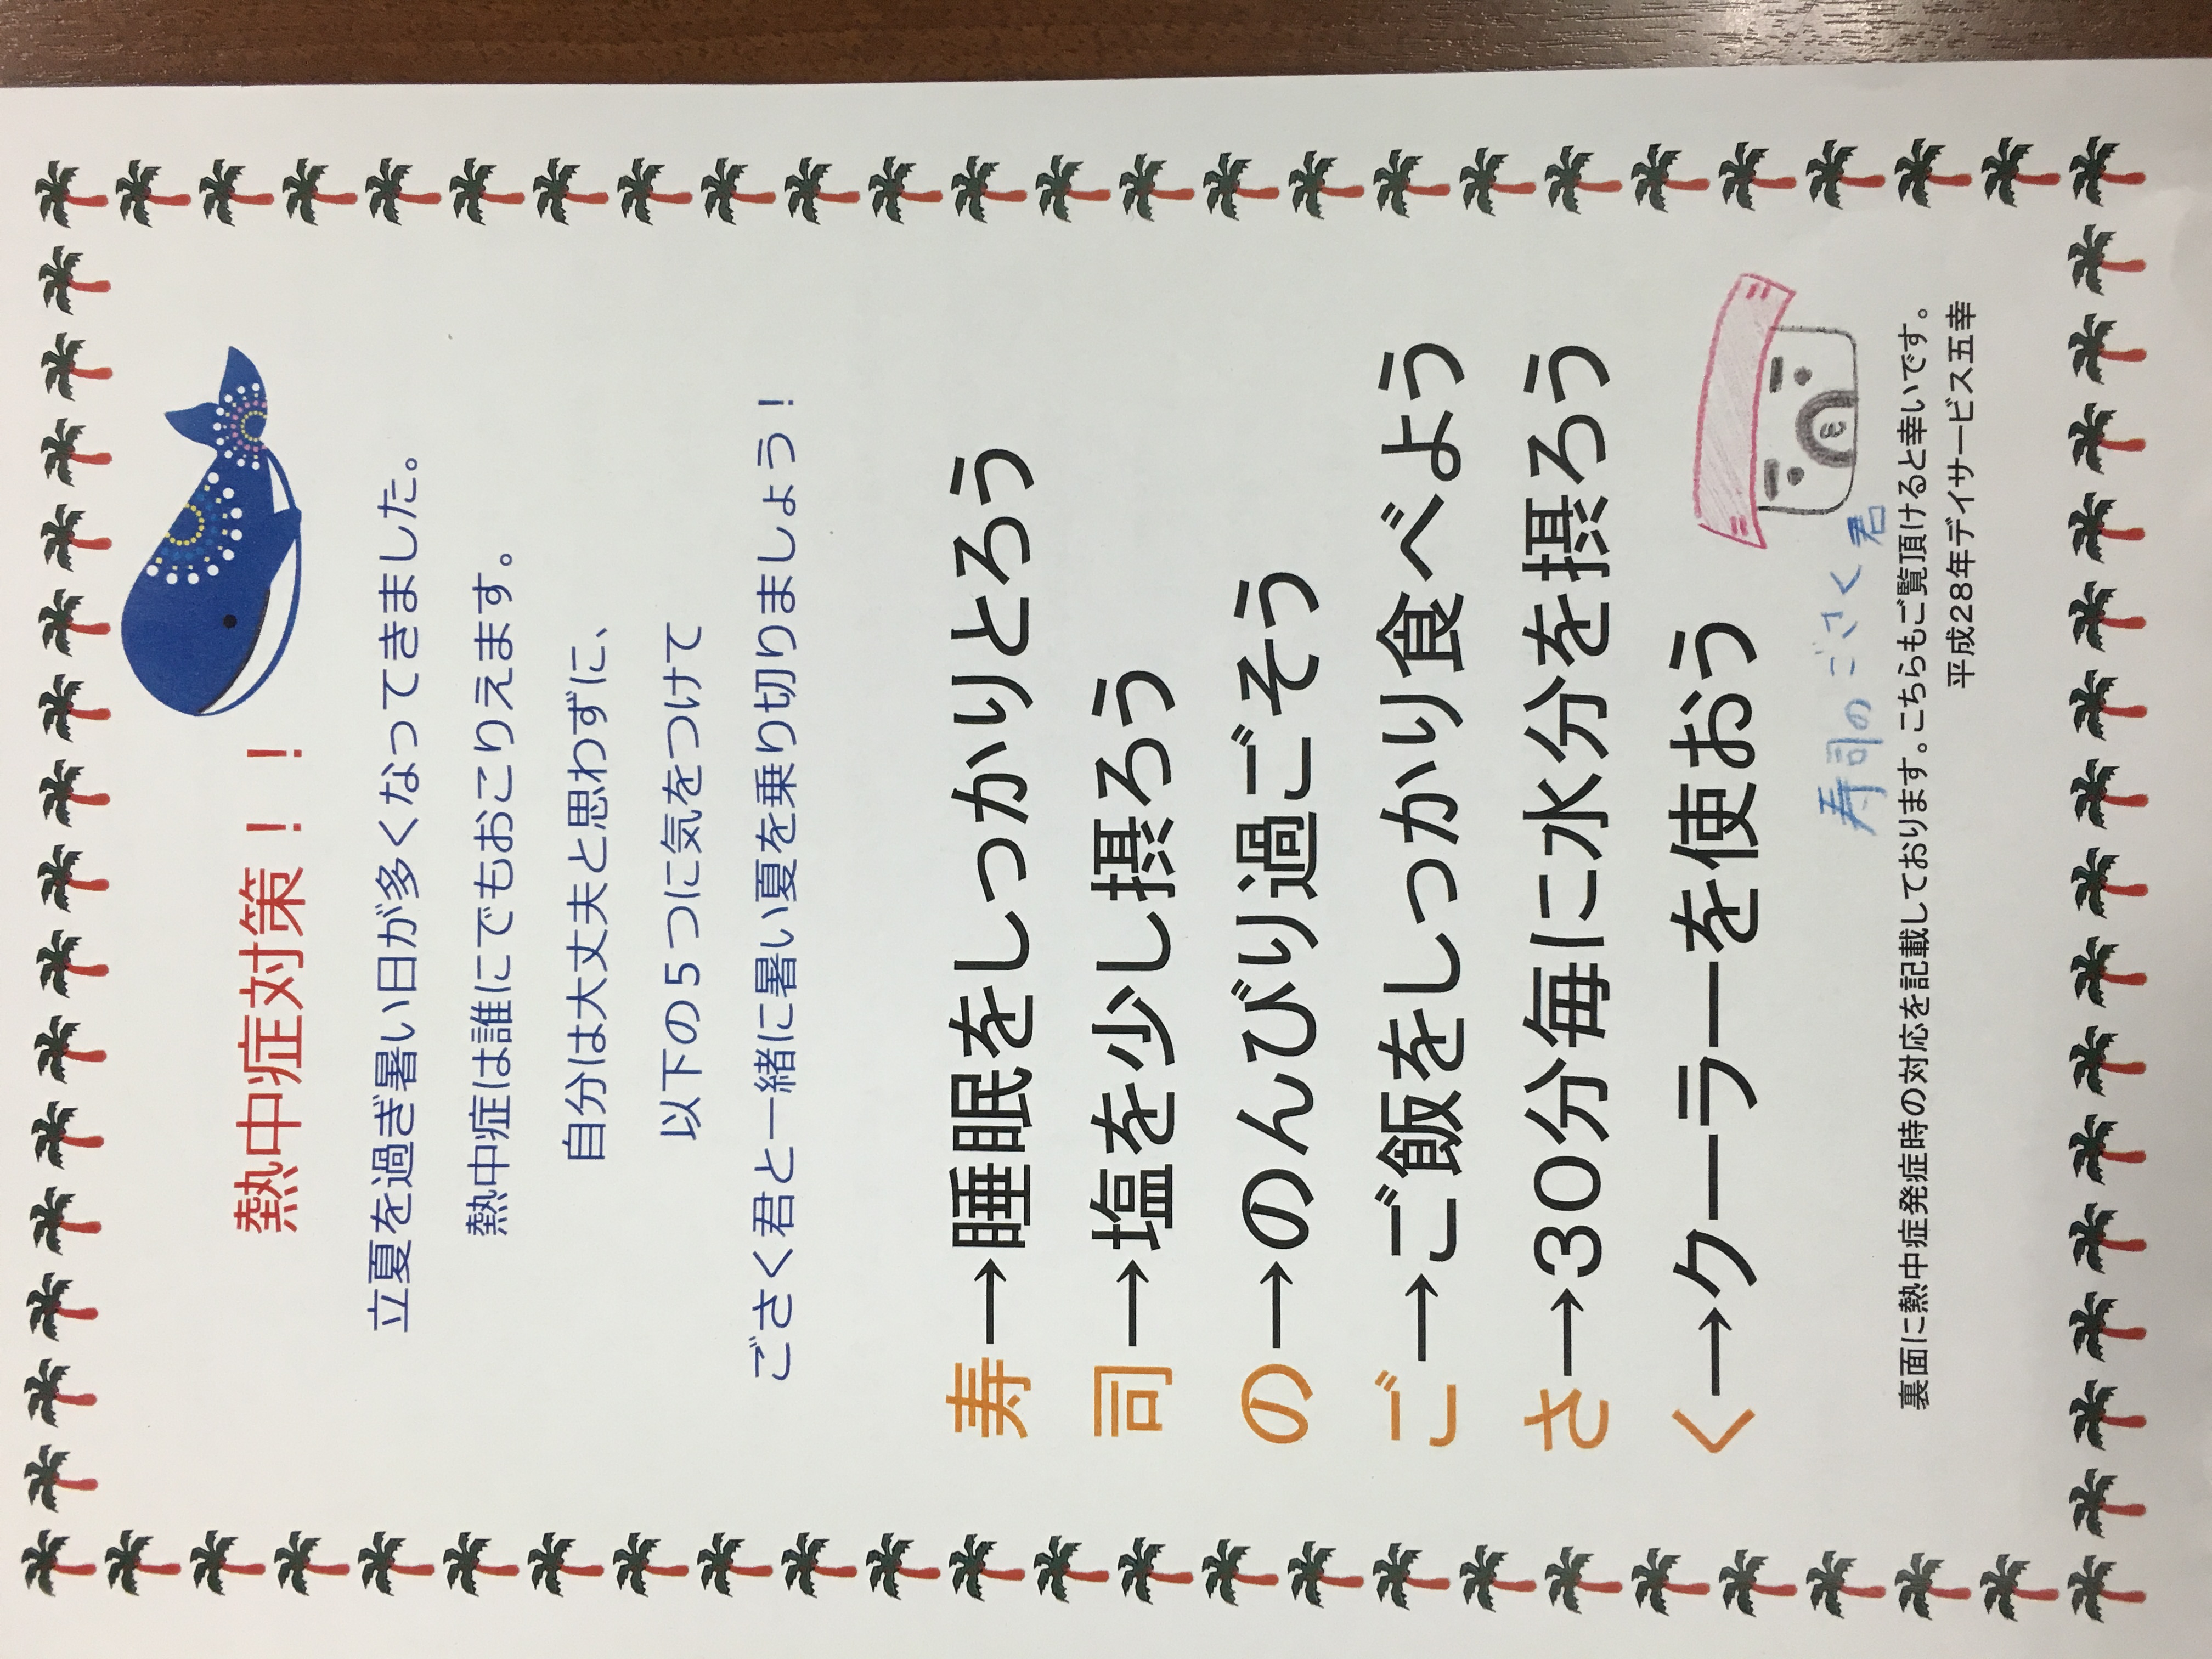 熱中症対策！！
立夏を過ぎ暑い日が多くなってきました。
熱中症は誰にでもおこりえます。
自分は大丈夫と思わずに、
以下の５つに気をつけて
ごさく君と一緒に暑い夏を乗り切りましょう！
寿→睡眠をしっかりとろう
司→塩を少し摂ろう
の→のんびり過ごそう
ご→ご飯をしっかり食べよう
さ→30分毎に水分を摂ろう
く→クーラーを使おう
寿司のごさく君
裏面に熱中症発症時の対応を記載しております。こちらもご覧頂けると幸いです。
平成28年デイサービス五幸